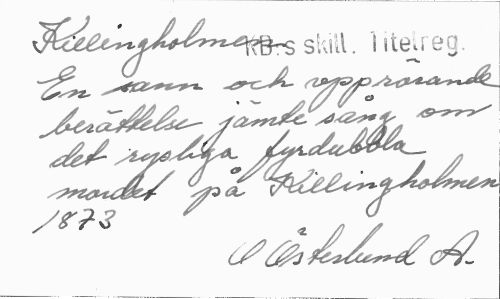 Killingholmen KB:s skill. Titelreg.
En sann och upprörande
berättelse jämte sång om
det rysliga fyrdubbla
mordet på Killingholmen
1873
Österlund A.